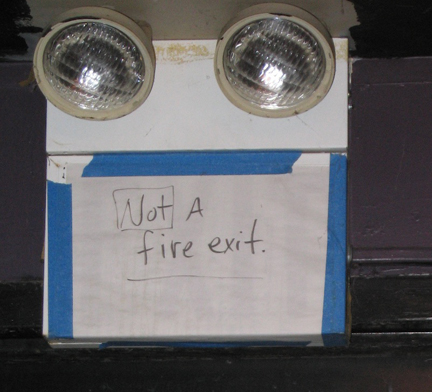 Not A
fire exit.